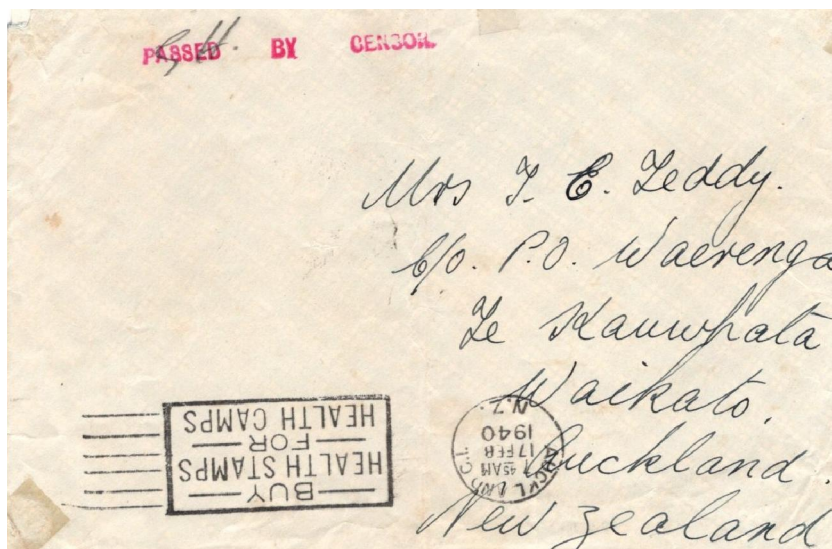 PASSED BY CENSOR.
Mrs E. Teddy.
C/o. P.O. Waerenga
Te Kauwhata
Waikato.
Auckland.
New Zealand
BUY
HEALTH STAMPS
FOR
HEALTH CAMPS
AUCKLAND C.1.
45AM
17 FEB
1940
N.Z.